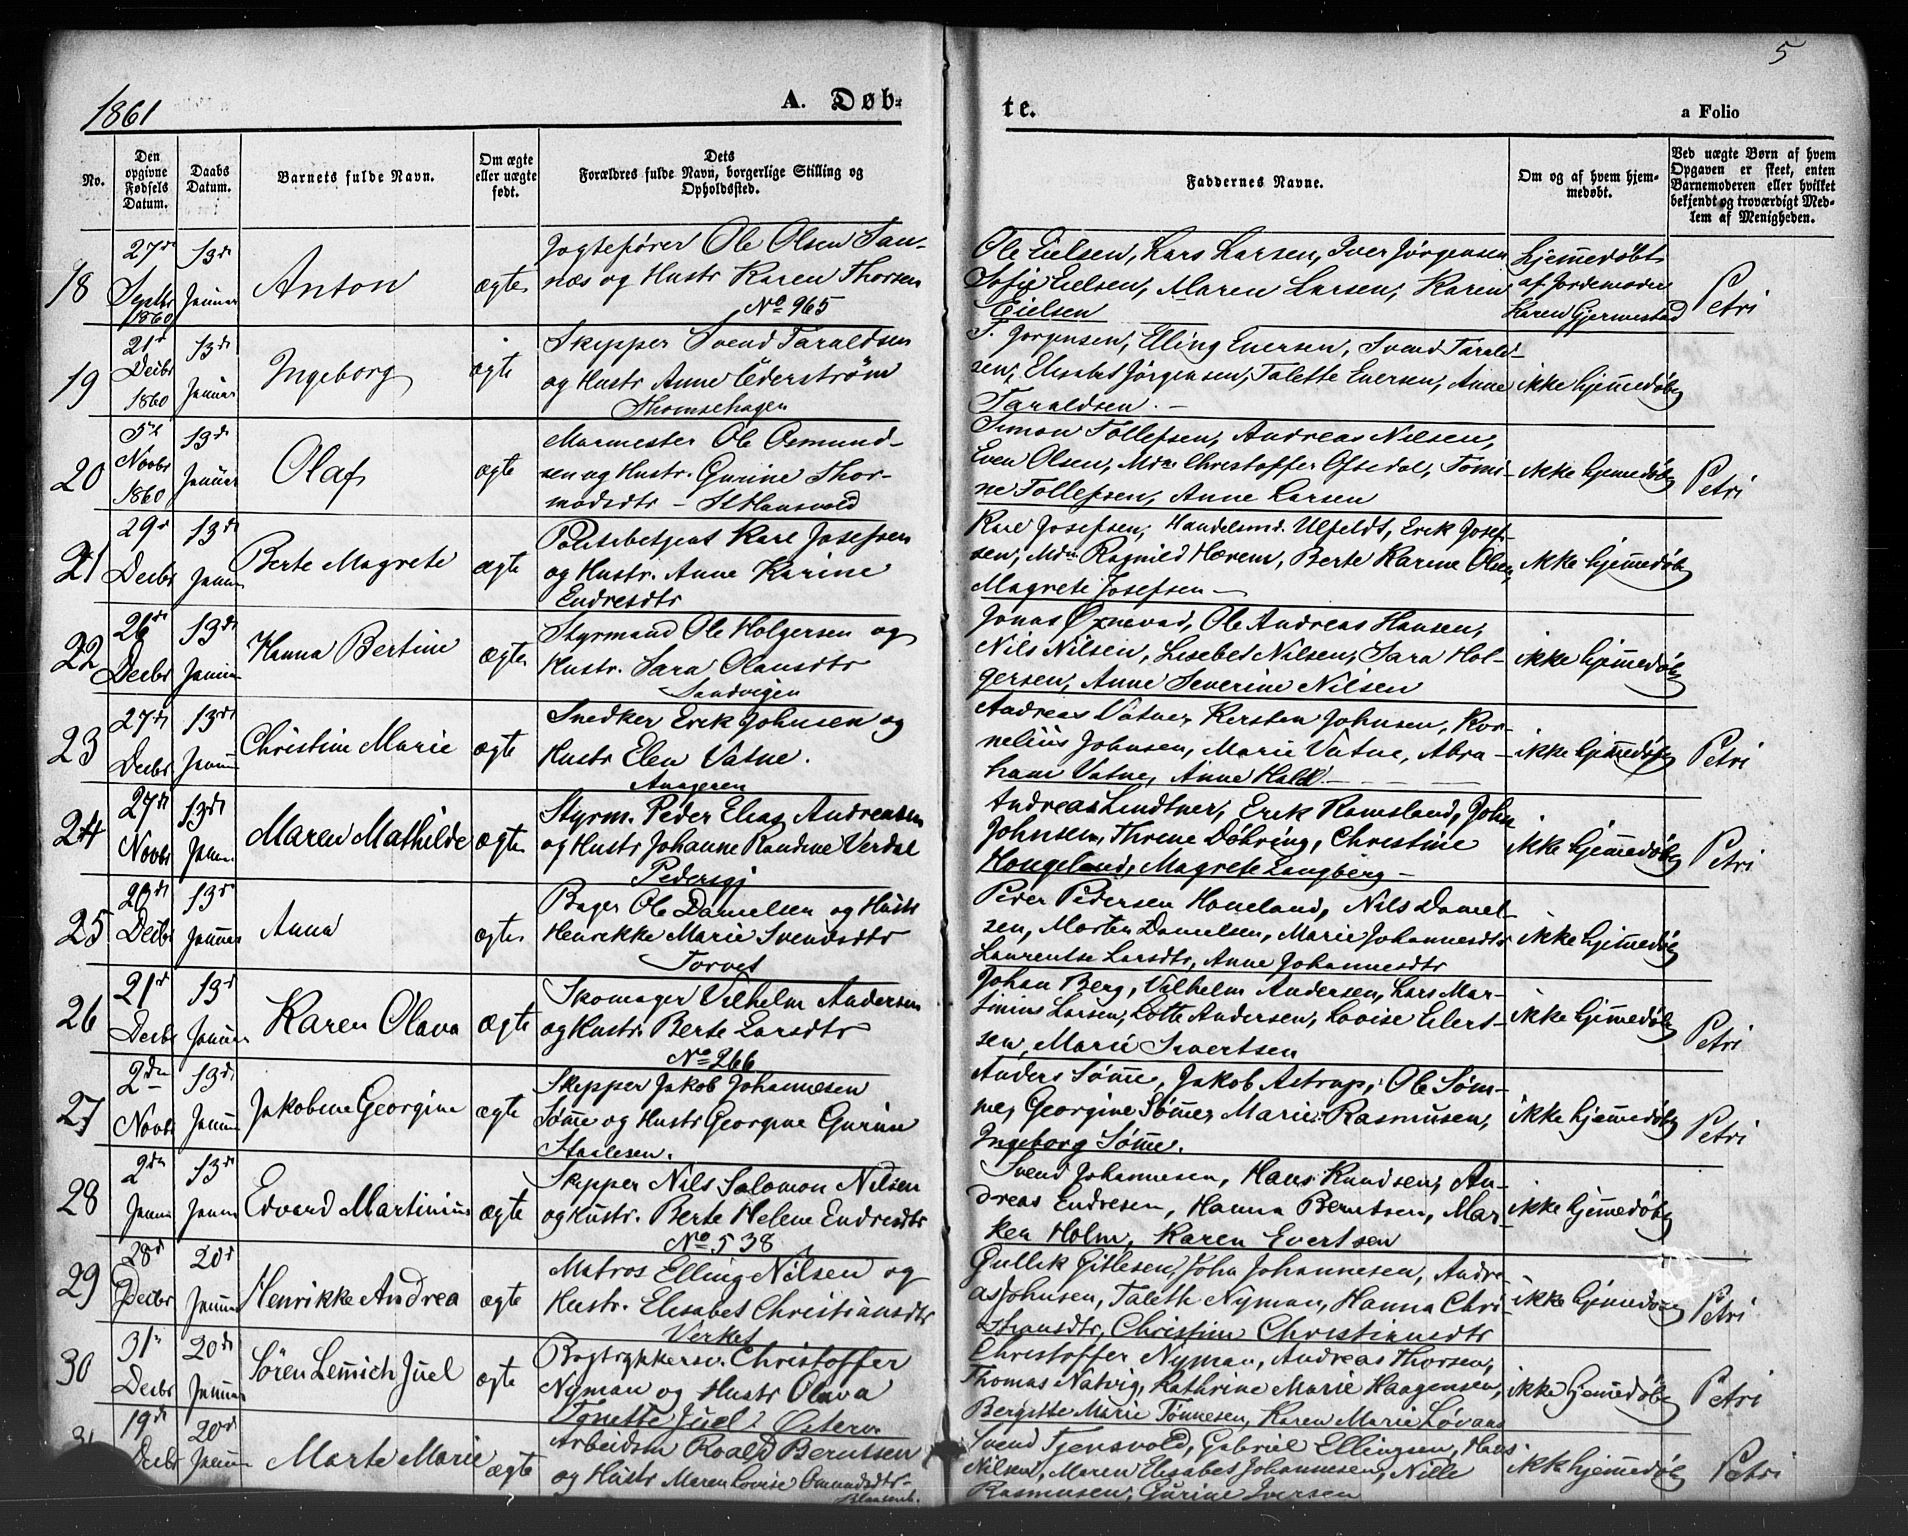 5
1861
A. Døb-
te.
a Folio
No.
Den opgivne Fødsels Datum.
Daabs Datum.
Barnets fulde Navn.
Om ægte eller uægte født.
Dets Forældres fulde Navn, borgerlige Stilling og Opholdssted.
Faddernes Navne.
Om og af hvem hjemmedøbt.
Ved uægte Børn af hvem Opgaven er skeet, enten Barnemoderen eller hvilket bekjendt og troværdigt Medlem af Menigheden.
18
27de Septbr 1860
13de Januar
Anton
ægte
Jagtefører Ole Olsen San-
næs og Hustr Karen Thorsen
No 965
Ole Eielsen, Lars Larsen, Iver Jørgensen
Sofie Eielsen, Maren Larsen, Karen
Eielsen
Hjemmedøbt
af Jordemoder
Karen Gjermestad
Petri
19
21de Decbr 1860
13de Januar
Ingeborg
ægte
Skipper Svend Taraldsen
og Hustr Anne Cederstrøm
Thomsehagen
T. Jørgensen, Elling Enersen, Svend Tarald-
sen, Elisabet Jørgensen, Talette Enersen, Anne
Taraldsen.
ikke hjemmedøbt
20
5te Novbr 1860
13de Januar
Olaf
ægte
Murmester Ole Osmund-
sen og Hustr. Gurine Thor-
modsdtr - St Hansvold
Simon Tollefsen, Andreas Nilsen,
Even Olsen, Mdm Christoffer Oftedal, Tomi-
ne Tollefsen, Anne Larsen
ikke hjemmedøbt
Petri
21
29de Decbr
13de Januar
Berte Magrete
ægte
Politibetjent Karl Josefsen
og Hustr. Anne Karine
Endresdtr
Karl Josefsen, Handelsmd. Ulfeldt, Erik Josef-
sen, Mdm Ragnild Hærem, Berte Karine Olsen,
Magrete Josefsen
ikke hjemmedøbt
22
26de Decbr
13de Januar
Hanna Bertine
ægte
Styrmand Ole Holgersen og
Hustr. Sara Olausdtr
Sandvigen
Jonas Øxnevad, Ole Andreas Hansen,
Nils Nilsen, Lisebet Nilsen, Sara Hol-
gersen, Anne Severine Nilsen
ikke hjemmedøbt
23
27de Decbr
13de Januar
Christine Marie
ægte
Snedker Erik Johnsen og
Hustr Elen Vatne.
Anageren
Andreas Vatne, Kersten Johnsen, Kor-
nelius Johnsen, Marie Vatne, Abra-
ham Vatne, Anne Hald.
ikke hjemmedøbt
Petri
24
27de Novbr
13de Januar
Maren Mathilde
ægte
Styrm. Peder Elias Andreasen
og Hustr Johanne Randine Verdal
Pedersgj
Andreas Lindtner, Erik Ramsland, John
Johnsen, Thrine Døhring, Christine
Hougeland, Magrete Langberg
ikke hjemmedøbt
Petri
25
20de Decbr
13de Januar
Anna
ægte
Bager Ole Danielsen og Hustr
Henrikke Marie Svendsdtr
Torvet
Peder Pedersen Haneland, Nils Daniel-
sen, Morten Danielsen, Marie Johannesdtr
Laurentse Larsdtr, Anne Johannesdtr
ikke hjemmedøbt
26
21de Decbr
13de Januar
Karen Olava
ægte
Skomager Vilhelm Andersen
og Hustr Berte Larsdtr
No 266
Johan Berg, Vilhelm Andersen, Lars Mar-
tinius Larsen, Lotte Andersen, Lovise Eilert-
sen, Marie Sivertsen
ikke hjemmedøbt
Petri
27
2den Novbr
13de Januar
Jakobine Georgine
ægte
Skipper Jakob Johannesen
Sømme og Hustr Georgine Gurine
Staalesen.
Anders Sømme, Jakob Astrup, Ole Søm-
me, Georgine Sømme, Marie Rasmusen,
Ingeborg Sømme.
ikke hjemmedøbt
Petri
28
2den Januar
13de Januar
Edvard Martinius
ægte
Skipper Nils Salomon Nilsen
og Hustr. Berte Helene Endresdtr
No 538
Svend Johannesen, Hans Knudsen, An-
dreas Endresen, Hanna Berntsen, Mar-
ken Holm, Karen Evertsen
ikke hjemmedøbt
29
28de Decbr
20de Januar
Henrikke Andrea
ægte
Matros Elling Nilsen og
Hustr. Elisabet Christiansdtr
Verket
Gullik Gitlesen, John Johannesen, Andre-
as Johnsen, Taleth Nyman, Hanna Chri-
stiansdtr, Christine Christiansdtr
ikke hjemmedøbt
Petri
30
31te Decbr
20de Januar
Søren Lemmich Juel
ægte
Bogtrykkersv. Christoffer
Nyman og Hustr Olava
Tonette Juel Østerv.
Christoffer Nyman, Andreas Thorsen,
Thomas Natvig, Kathrine Marie Haagensen,
Bergitte Marie Tønnesen, Karen Marie Løvaas
ikke hjemmedøbt
Petri
31
19de Decbr
20de Januar
Marte Marie
ægte
Arbeidsm Roald Berntsen
og Hustr Maren Lovise Omundsdtr
Blaasenb.
Svend Tjensvold, Gabriel Ellingsen, Hans
Nilsen, Maren Elisabet Johannesen, Nille
Rasmusen, Gurine Iversen
ikke hjemmedøbt
Petri